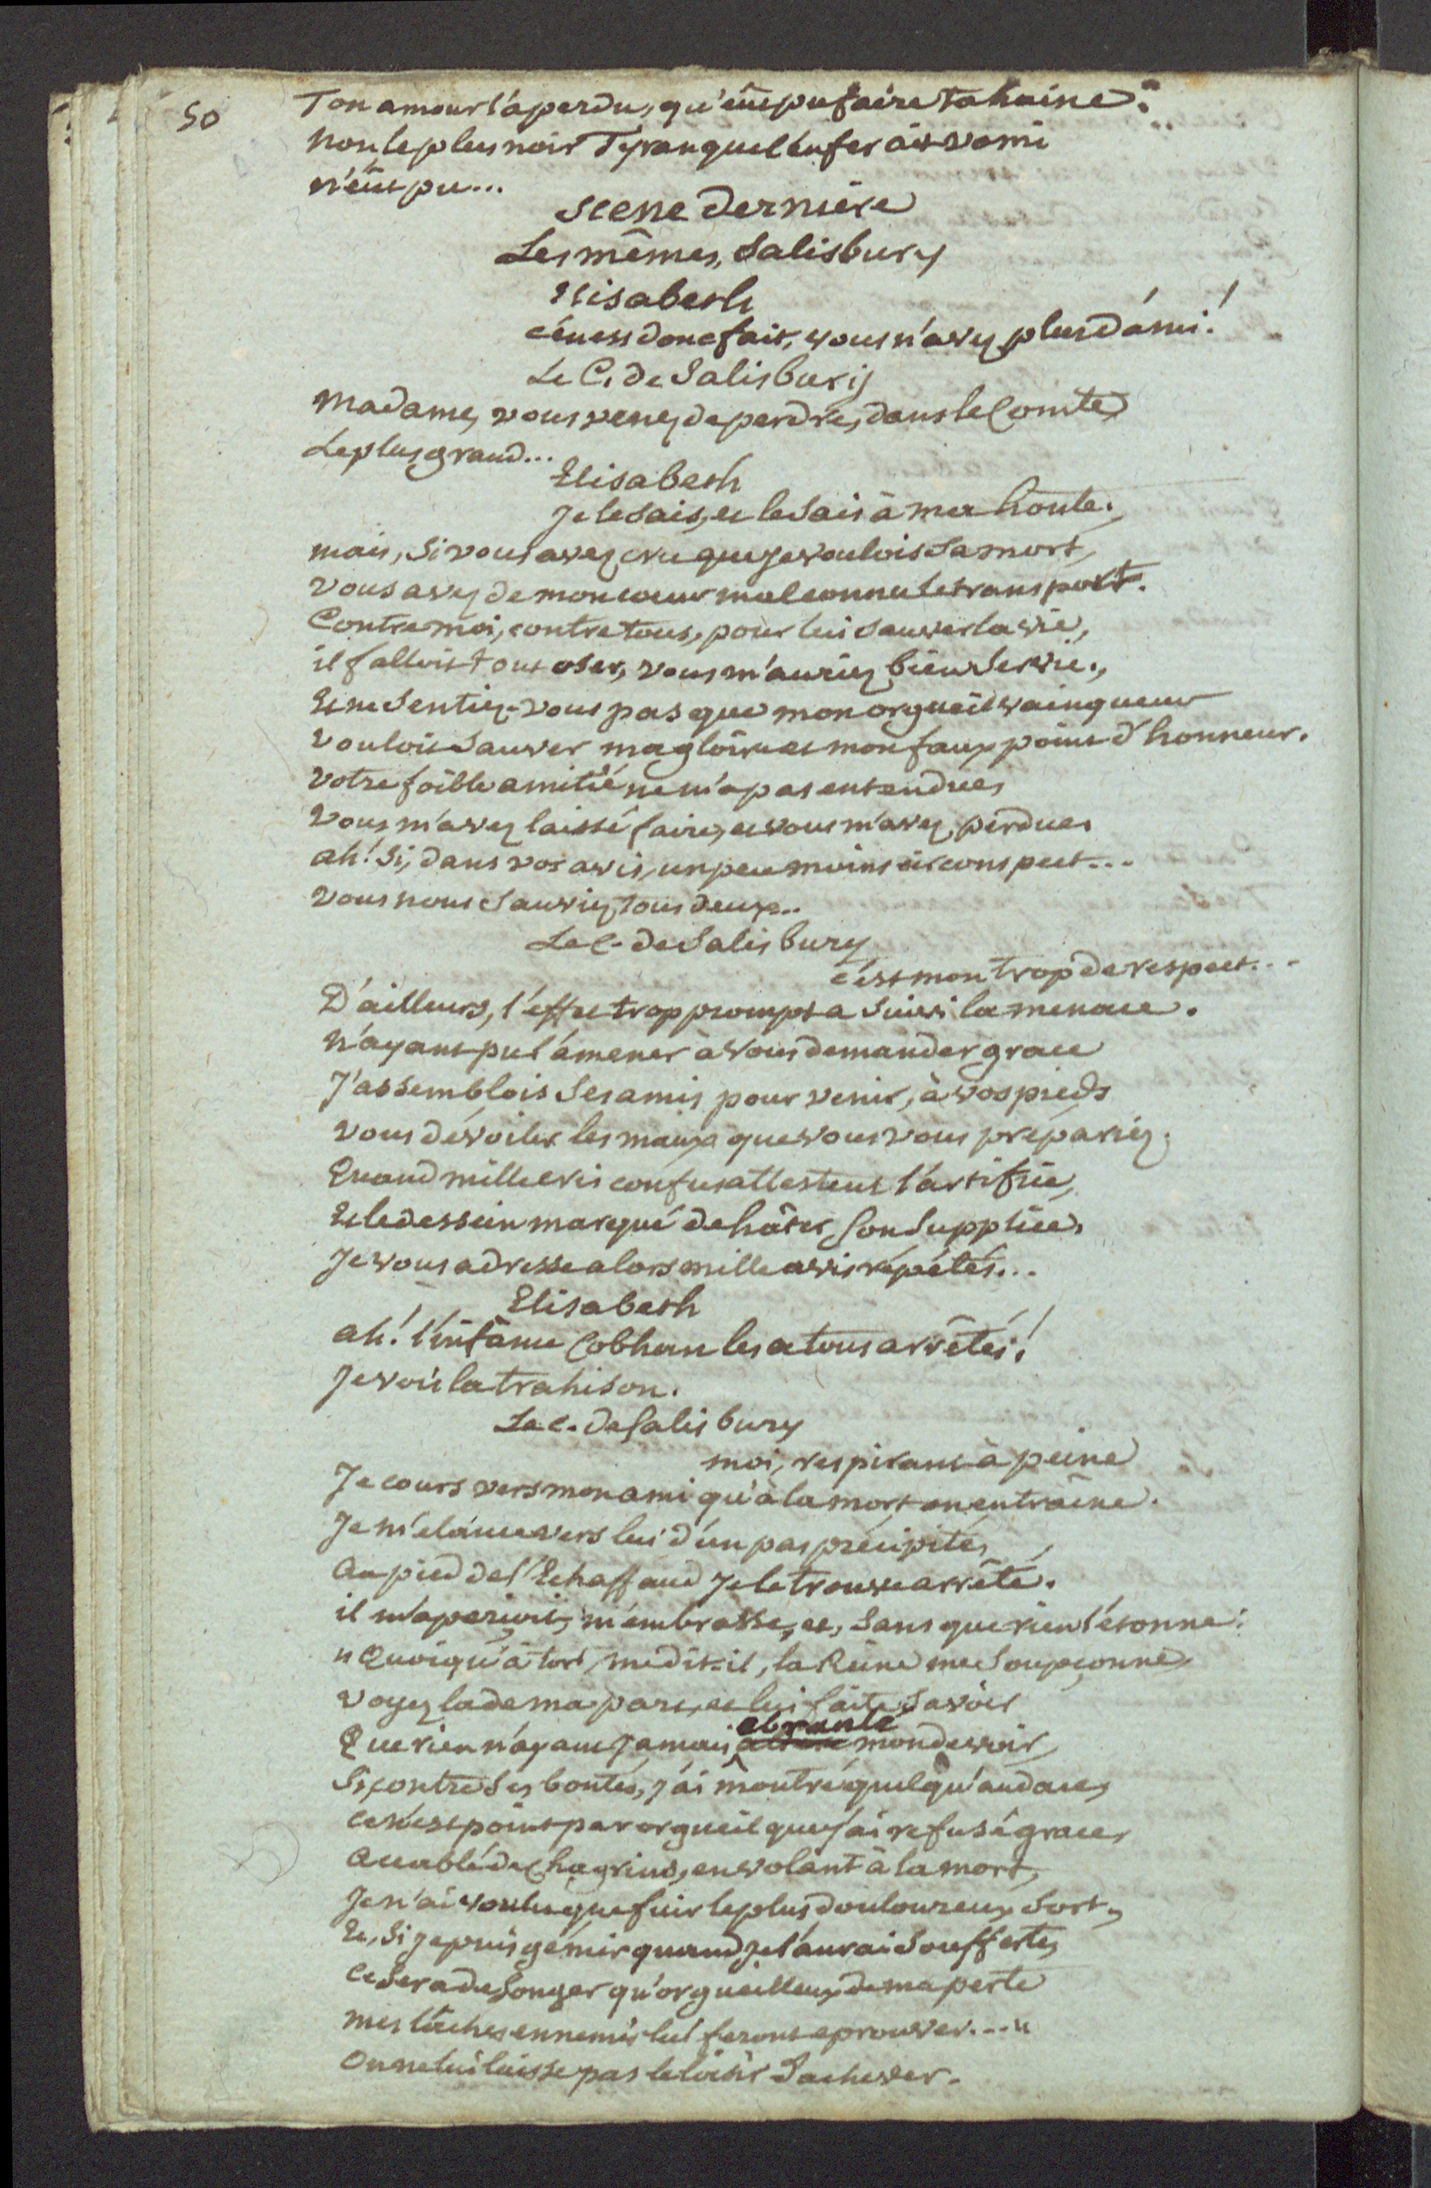 50
Ton amour l'a perdu, qu'eût pu faire ta haine?
non le plus noir Tyran que l'enfer ait vomi
n'eût pu...
Scene derniére
Les mêmes, Salisbury
Elisabeth
c'en est donc fait, vous n'avez plus d'ami!
Le C. de Salisbury
Madame, vous venez de perdre, dans le Comte
Le plus grand...
Elisabeth
Je le sais, et le sais à ma honte.
mais, si vous avez cru que je voulois sa mort,
vous avez de mon coeur mal connu le transport.
Contre moi, contre tous, pour lui sauver la vie,
il falloit tout oser, vous m'auriez bien servie.
Et ne sentiez-vous pas que mon orgueil vainqueur
vouloit sauver ma gloire et mon faux point d'honneur.
votre foible amitié ne m'a pas entendue,
vous m'avez laissé faire, et vous m'avez perdue.
ah! si, dans vos avis, un peu moins circonspect...
vous nous sauviez tous deux..
Le c. de Salisbury
c'est mon trop de respect...
D'ailleurs, l'effet trop prompt a suivi la menace.
n'ayant pu l'amener à vous demander grace
J'assemblois ses amis pour venir, à vos pieds
vous dévoiler les maux que vous vous prépariez.
Quand mille cris confus attestent l'artifice,
Et le dessein marqué de hâter son supplice,
Je vous adresse alors mille avis répétés...
Elisabeth
ah! l'infame Cobham les a tous arrêtés!
Je vois la trahison.
Le c. de Salisbury
moi, respirant à peine
Je cours vers mon ami qu'à la mort on entraîne.
Je m'elance vers lui d'un pas précipité,
au pied de l'Echaffaud je le trouve arrêté.
il m'aperçoit, m'embrasse, et, sans que rien l'étonne:
" Quoiqu'à tort, me dit-il, la Reine me soupçonne,
voyez la de ma part, et lui faites savoir
Que rien n'ayant jamais ebranlé mon devoir,
Si, contre ses bontés, j'ai montré quelqu'audace,
ce n'est point par orgueil que j'ai refusé grace,
accablé de chagrins, en volant à la mort,
Je n'ai voulu que fuir le plus douloureux sort,
Et, si je puis gémir quand je l'aurai soufferte,
Ce sera de songer qu'orgueilleux de ma perte
mes lâches ennemis lui feront eprouver..."
On ne lui laisse pas le loisir d'achever.